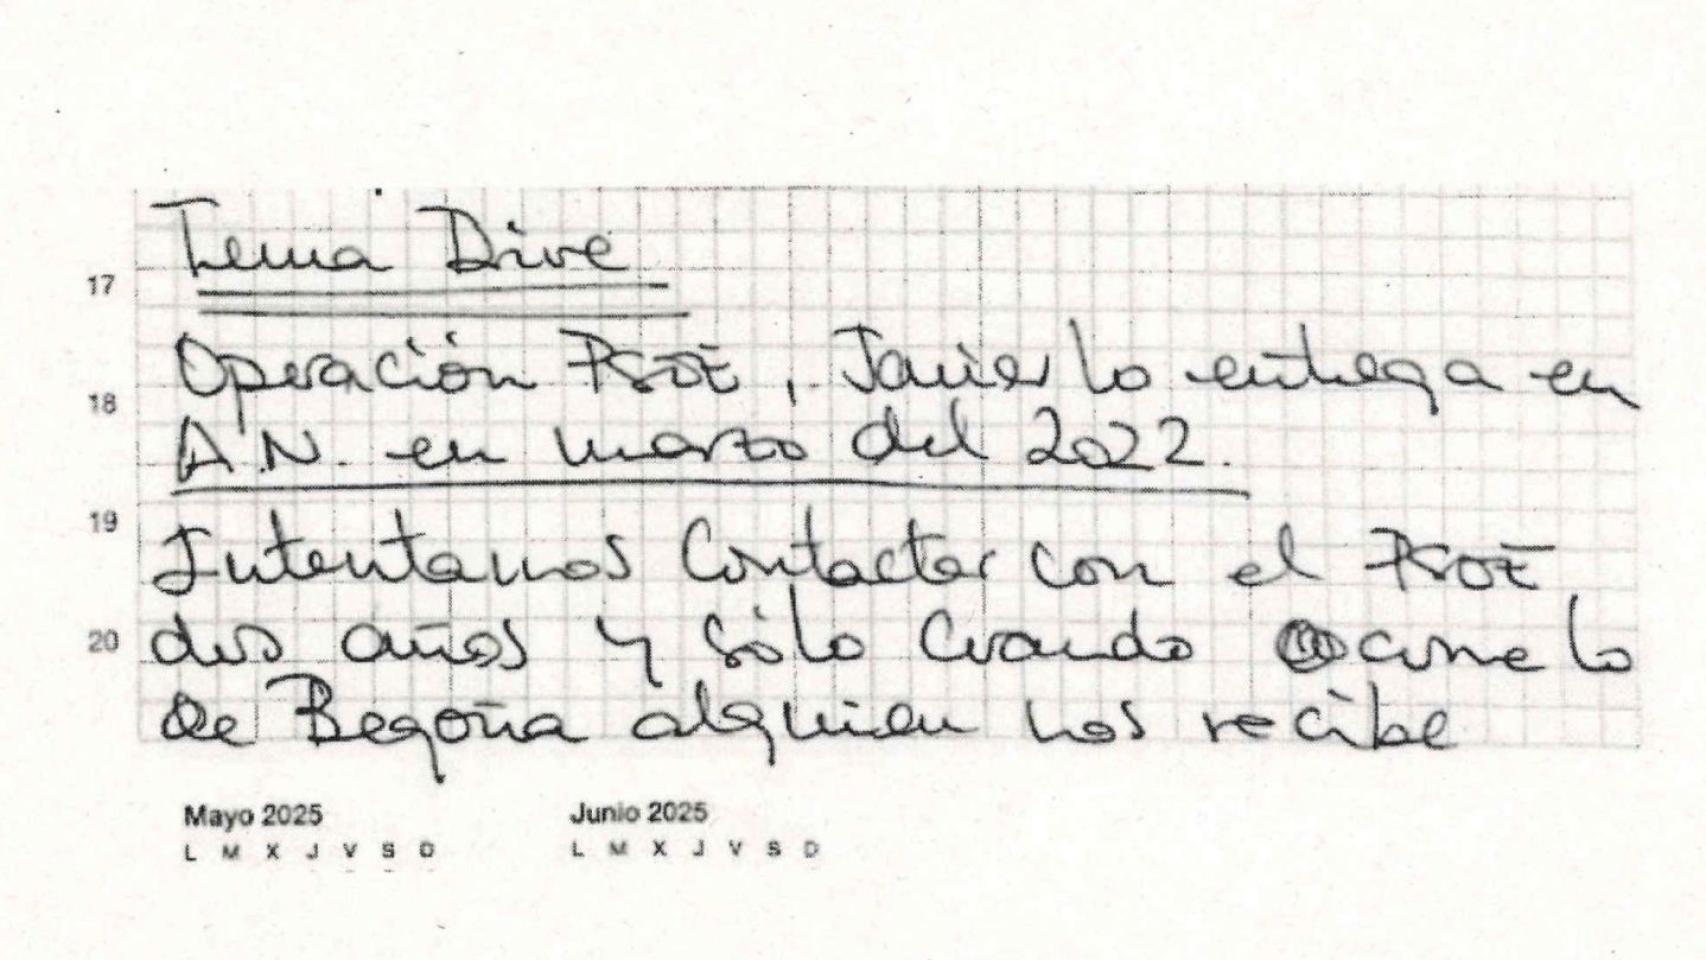 Tema Dive
17
Operación PSOE, Javier lo entrega en
18
A.N. en marzo del 2022.
19
Intentamos Contactar con el PSOE
20
dos años y sólo cuando ocurre lo
de Begoña alguien nos recibe
Mayo 2025 Junio 2025
L M X J V S D L M X J V S D